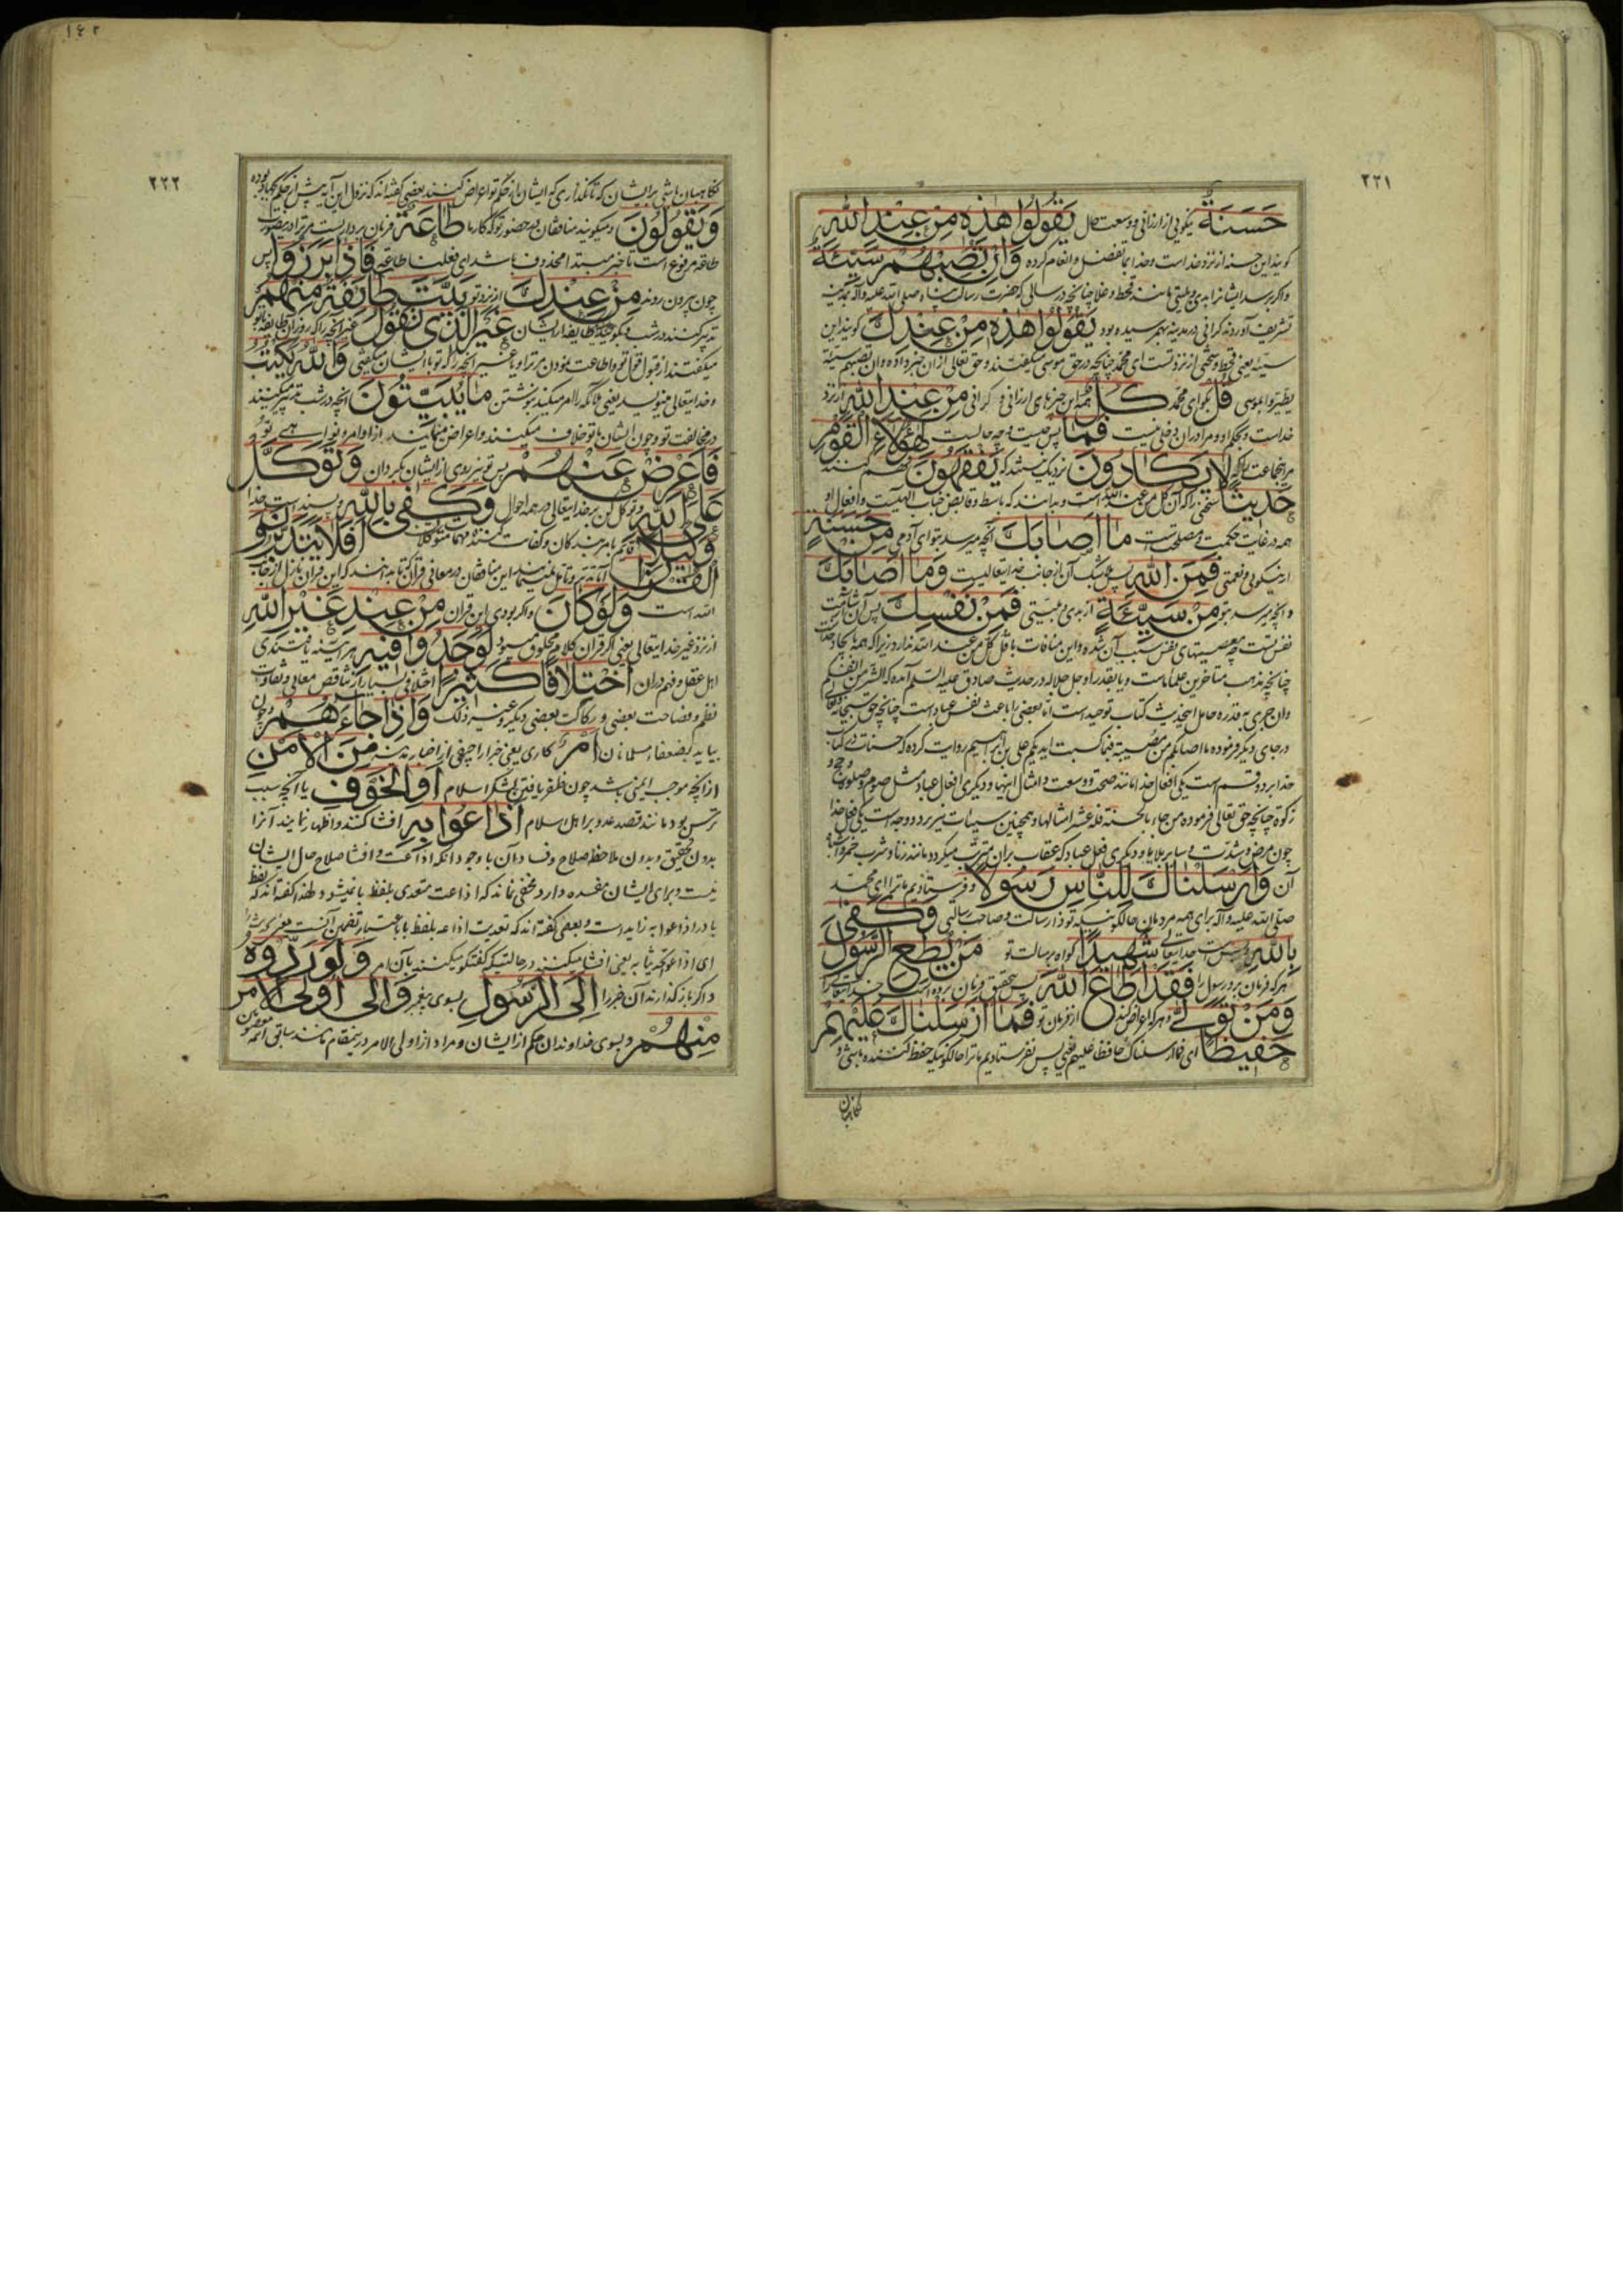 ٢٢١
حَسَنَةٌ نیکویی از ارزانی و وسعت حال يَقُولُوا هٰذِهِ مِنْ عِنْدِ اللّٰهِ
کویند این حسنه از نزد خداست و خدا بما تفضل و انعام کرده وَاِنْ تُصِبْهُمْ سَيِّئَةٌ
و اکر برسد ایشانرا بدی و بلیتی مانند قحط و غلا چنانچه در سالی که حضرت رسالت پناه صلی الله علیه و آله بمدینه
تشریف آوردند کرانی در مدینه بهم رسیده بود يَقُولُوا هٰذِهِ مِنْ عِنْدِكَ کویند این
سیئه یعنی قحط و سختی از نزد تست ای محمد چنانچه در حق موسی میکفتند و حق تعالی از ان خبر داده و ان تصبهم سیئة
یطیروا بموسی قُلْ بکو ای محمد كُلٌّ همه این چیزهای ارزانی و کرانی مِنْ عِنْدِ اللّٰهِ از نزد
خداست و بحکم او و مرا در ان دخلی نیست فَمَا پس چیست و چه حالیست لِهٰؤُلَاءِ الْقَوْمِ
مر انجماعت را که لَا يَكَادُونَ نزدیک نیستند که يَفْقَهُونَ فهم کنند
حَدِيثًا سخنی را که آن کل من عند الله است و بدانند که باسط و قابض جناب الهیت و افعال او
همه در غایت حکمت و مصلحت است مَا اَصَابَكَ آنچه میرسد بتو ای آدمی مِنْ حَسَنَةٍ
از نیکویی و نعمتی فَمِنَ اللّٰهِ پس بی شک آن از جانب خدایتعالیست وَمَا اَصَابَكَ
و آنچه برسد بتو مِنْ سَيِّئَةٍ از بدی و بلیتی فَمِنْ نَفْسِكَ پس آن
نفس تست چه معصیتهای نفس سبب آن شده و این منافات با قل کل من عند الله ندارد زیرا که همه بایجاد خداست
چنانچه مذهب متاخرین علماء ماست و یا بقدر او جل جلاله در حدیث صادق علیه السلم آمده که
وان جری به قدره حامل اینحدیث کتاب توحید است اما بعضی را باعث نفس عباد است چنانچه حق سبحانه تعالی
در جای دیکر فرموده ما اصابکم من مصیبة فبما کسبت ایدیکم علی بن ابراهیم روایت کرده که حسنات در کتاب
خدا بر دو قسم است یکی افعال خدا مانند صحت و وسعت و امثال اینها و دیکری افعال عباد مثل صوم و صلوة و حج و
زکوة چنانچه حق تعالی فرموده من جاء بالحسنة فله عشر امثالها و همچنین سیئات نیز بر دو وجه است یکی فعل خدا
چون مرض و شدت و سایر بلایا و دیکری فعل عباد که عقاب بران مترتب میکردد مانند زنا و شرب خمر و امثال
آن وَاَرْسَلْنَاكَ لِلنَّاسِ رَسُولًا و فرستادیم ما ترا ای محمد
صلی الله علیه و آله برای همه مردمان حالکونیکه تو ذا رسالت و صاحب رسالتی وَكَفٰى
بِاللّٰهِ و بس است خدایتعالی شَهِيدًا کواه بر رسالت تو مَنْ يُطِعِ الرَّسُولَ
هر که فرمان برد رسول را فَقَدْ اَطَاعَ اللّٰهَ پس بتحقیق فرمان برده است خدایتعالی را
وَمَنْ تَوَلّٰى و هر که اعراض کند از فرمان تو فَمَا اَرْسَلْنَاكَ عَلَيْهِمْ
حَفِيظًا ای فما ارسلناک حافظا علیهم یعنی پس نفرستادیم ما ترا حالکونیکه حفظ کننده باشی و
نکاهبان
١٤٢
٢٢٢
نکاهبان باشی بر ایشان که تا نکذاری که ایشان از حکم تو اعراض کنند بعضی کفته اند که نزول این آیه پیش از حکم بجهاد بوده
وَيَقُولُونَ و میکویند منافقان در حضور تو که کار ما طَاعَةٌ فرمان برداریست مر ترا
طاعة مرفوع است تا خبر مبتداء محذوف باشد ای فعلنا طاعة فَاِذَا بَرَزُوا پس
چون بیرون روند مِنْ عِنْدِكَ از نزد تو بَيَّتَ طَائِفَةٌ مِنْهُمْ
تدبیر کنند در شب و بکویند طایفه از ایشان غَيْرَ الَّذِى تَقُولُ غیر آنچه را که روز آن طایفه با تو
میکفتند از قبول قول تو و اطاعت نمودن مر ترا و یا غیر آنچه را که تو با ایشان میکفتی وَاللّٰهُ يَكْتُبُ
و خدایتعالی مینویسد یعنی ملائکه را امر میکند بنوشتن مَا يُبَيِّتُونَ آنچه در شب تدبیر میکنند
در مخالفت تو و چون ایشان با تو خلاف میکنند و اعراض مینمایند از اوامر و نواهی تو
فَاَعْرِضْ عَنْهُمْ پس تو نیز روی از ایشان بکردان وَتَوَكَّلْ
عَلَى اللّٰهِ و توکل کن بر خدایتعالی در همه احوال وَكَفٰى بِاللّٰهِ و بسنده است خدا
وَكِيلًا قائم بامر بندکان و کفایت کننده مهمات متوکلان اَفَلَا يَتَدَبَّرُونَ
الْقُرْآنَ آیا تدبر و تامل نمینمایند این منافقان در معانی قرآن که تا بدانند که این قران نازل از جانب
الله است وَلَوْ كَانَ و اکر بودی این قران مِنْ عِنْدِ غَيْرِ اللّٰهِ
از نزد غیر خدایتعالی یعنی اکر قران کلام مخلوق میبود لَوَجَدُوا فِيهِ هر آینه یافتندی
اهل عقل و فهم در ان اخْتِلَافًا كَثِيرًا اختلافی بسیار از تناقص معانی و تفاوت
نظم و فصاحت بعضی و رکاکت بعضی دیکر و غیر ذلک وَاِذَا جَاءَهُمْ و چون
بیاید بضعفاء مسلمانان اَمْرٌ کاری یعنی خبر اراجیفی از اخبار مدینه مِنَ الْاَمْنِ
از آنچه موجب ایمنی باشد چون ظفر یافتن لشکر اسلام اَوِ الْخَوْفِ یا آنچه سبب
ترس بود مانند قصد عدو بر اهل اسلام اَذَاعُوا بِهِ افشا کنند و اظهار نمایند آنرا
بدون تحقیق و بدون ملاحظه صلاح و فساد آن با وجود آنکه اذاعت و افشا صلاح حال ایشان
نیست و برای ایشان مفسده دارد مخفی نماند که اذاعت متعدی بلفظ با نمیشود لهذا کفته اند که لفظ
با در اذاعوا به زایده است و بعضی کفته اند که تعدیت اذاعه بلفظ با باعتبار تضمین
ای اذاعوا تحدیثا به یعنی افشا میکنند در حالتیکه کفتکو میکنند بآن امر وَلَوْ رَدُّوهُ
و اکر باز کذارند آن خبر را اِلَى الرَّسُولِ بسوی پیغمبر وَاِلٰى اُولِى الْاَمْرِ
مِنْهُمْ و بسوی خداوندان حکم از ایشان و مراد از اولی الامر در ینمقام مانند سابق ائمه معصومین